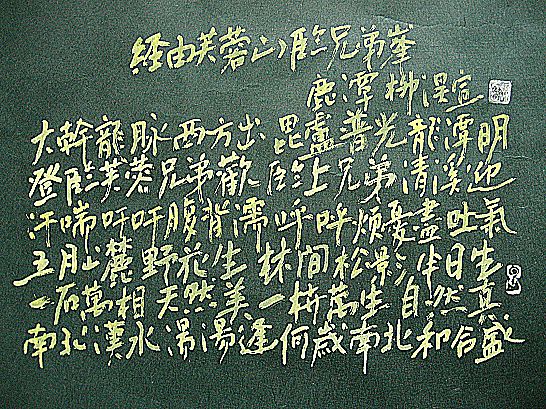 経由芙蓉山 臨兄弟峯
鹿潭 柳滉
大幹龍脉西方出 毘盧普光龍潭明
登臨芙蓉兄弟歡 臨上兄弟清溪迎
汗喘吁吁腹背濡 呼呼煩憂盡吐氣
五月山麓野花生 林間松影伴日生
一石萬相天然美 一樹萬生自然真
南北漢水湯湯逢 何歲南北和合盛